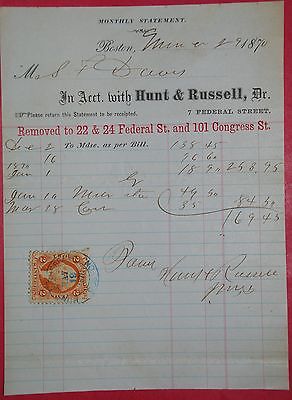 MONTHLY STATEMENT.
Boston, 29 1870
Mr S F Davis
In Acct. with Hunt & Russell, Dr.
Please return this Statement to be receipted. 7 FEDERAL STREET.
Removed to 22 & 24 Federal St. and 101 Congress St.
Dec 2 To Mdse. as per Bill. 138 45
16 96 60
1870 Jan 1 18 90 253 95
Cr
Jan 10 Mdse 49 50
Mar 28 35 84 50
169 45
Hunt & Russell